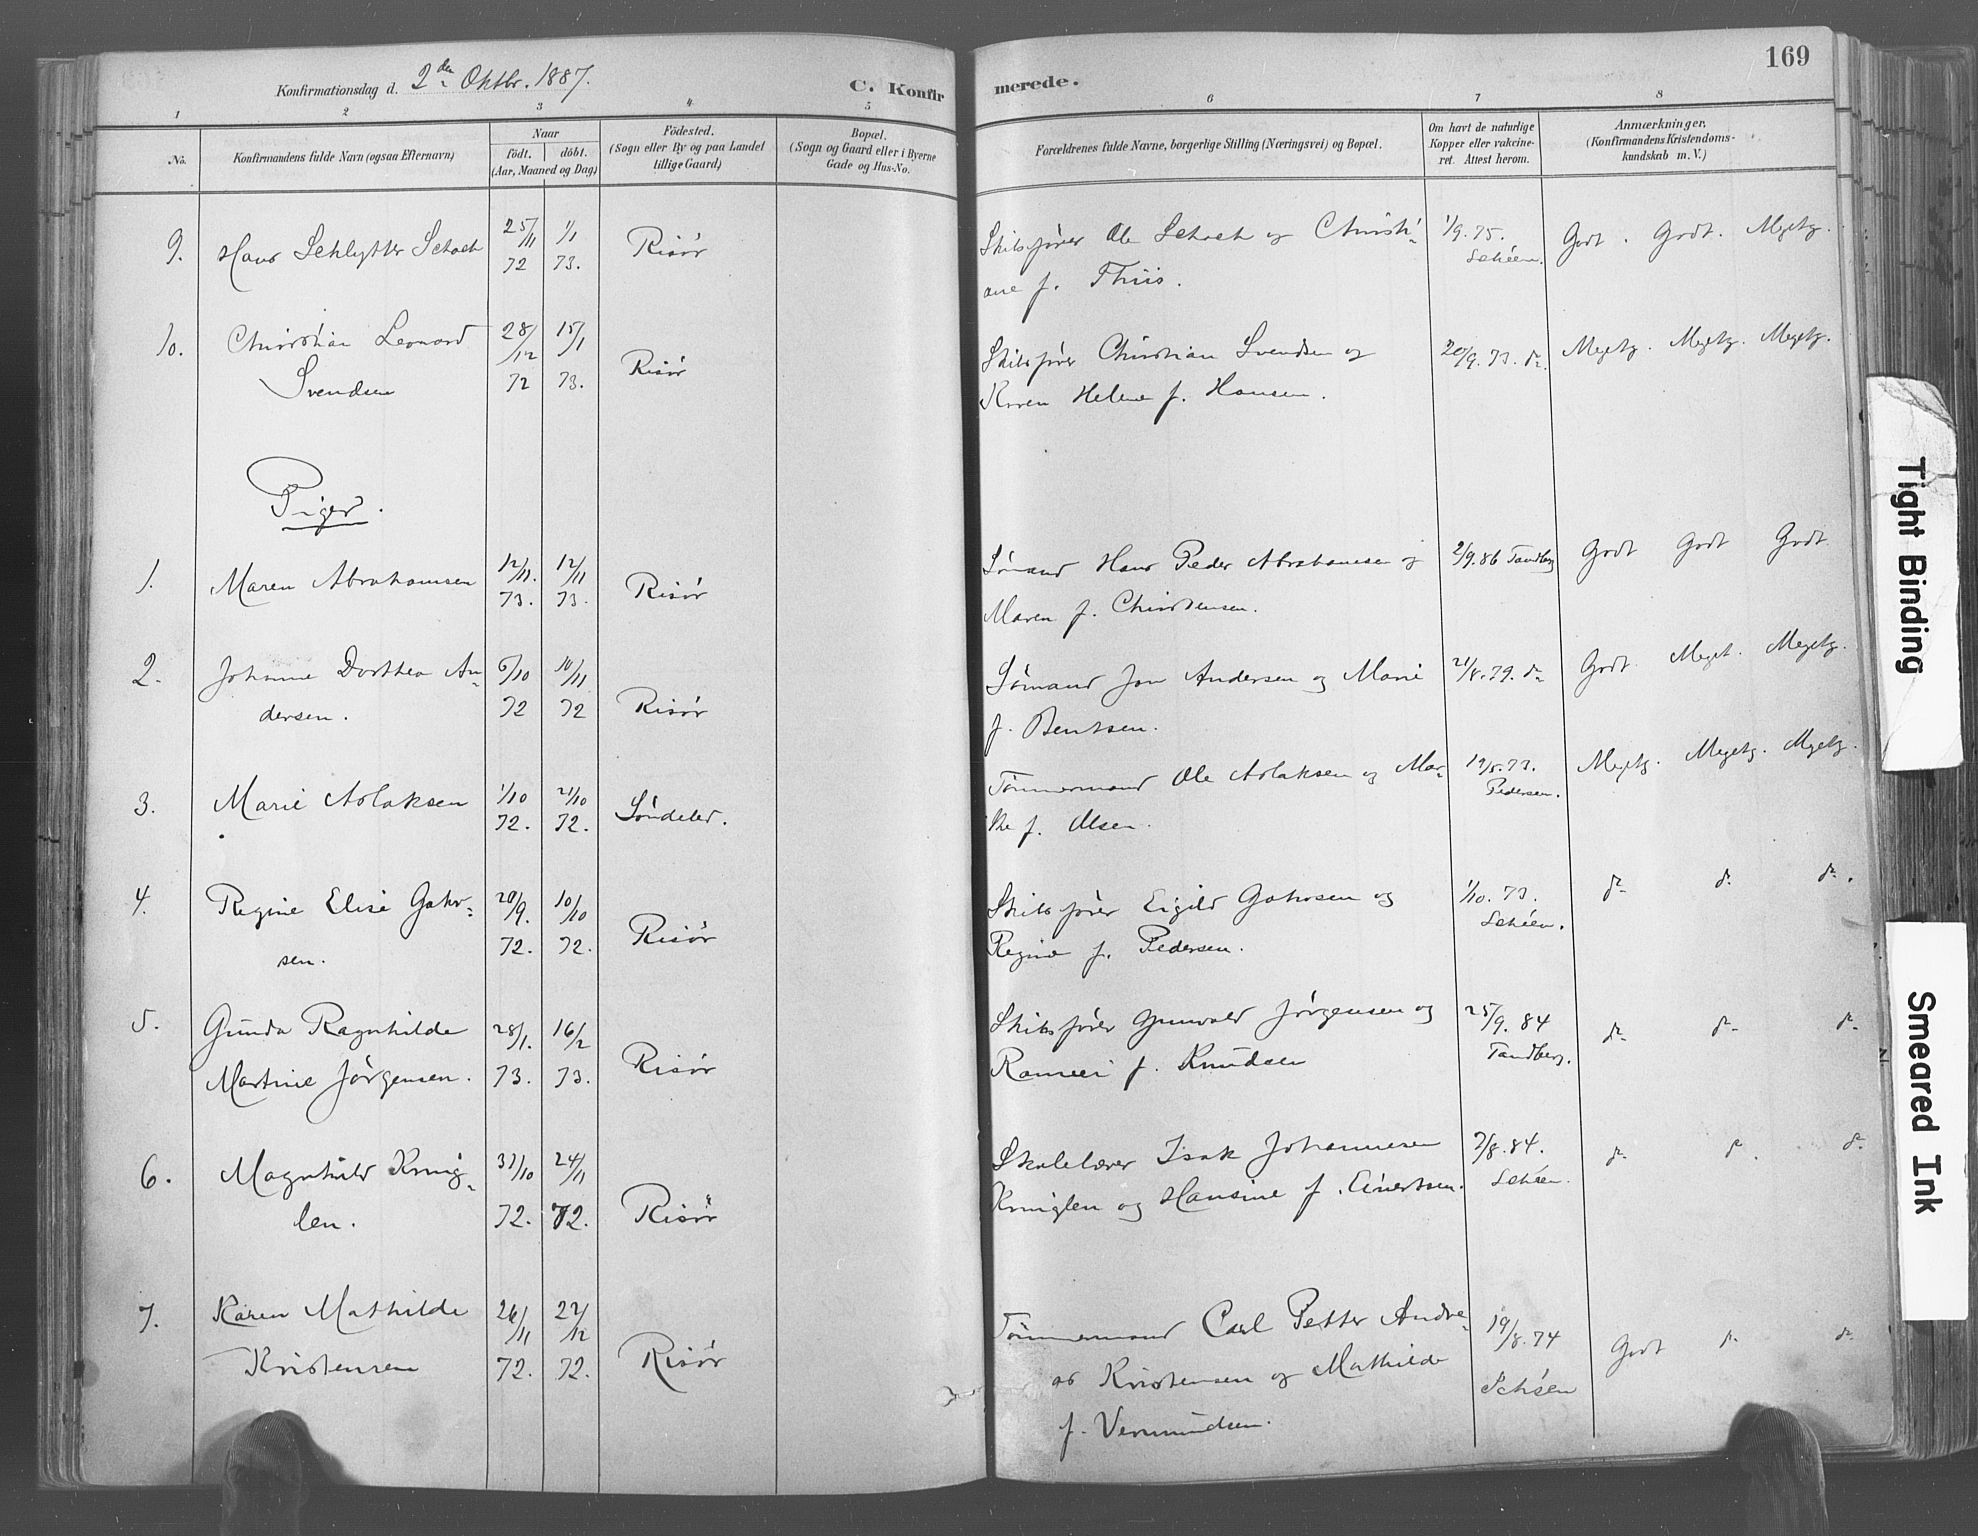 169
Konfirmationsdag d. 2den Oktbr. 1887.
C. Konfirmerede.
1 2 3 4 5 6 7 8
No.
Konfirmandens fulde Navn (ogsaa Efternavn)
Naar
født. døbt.
(Aar, Maaned og Dag)
Födested.
(Sogn eller By og paa Landet
tillige Gaard)
Bopæl.
(Sogn og Gaard eller i Byerne
Gade og Hus-No.
Forældrenes fulde Navne, borgerlige Stilling (Næringsvei) og Bopæl.
Om havt de naturlige
Kopper eller vakcine-
ret. Attest herom.
Anmærkninger.
(Konfirmandens Kristendoms-
kundskab m. V.)
9. Hans Schlytter Schach 25/11 72 1/1 73. Risör Skibsfører Ole Schach og Christi-
ane f. Thiis. 1/9. 75. Schéen. Godt. Godt. Megetg.
10. Christian Leonard
Svendsen 28/12 72 15/1 73. Risör Skibsfører Christian Svendsen og
Karen Helene f. Hansen. 20/9. 73. do. Megetg. Megetg. Megetg.
Piger.
1. Maren Abrahamsen 12/11. 73. 12/11 73. Risör Sømand Hans Peder Abrahamsen og
Maren f. Christensen. 2/9. 86 Tandberg Godt Godt Godt
2. Johanne Dorthea An-
dersen. 6/10 72 10/11 72 Risör Sømand Jon Andersen og Marie
f. Bentsen. 21/8. 79. do Godt. Meget. Megetg.
3. Marie Aslaksen 1/10 72. 21/10 72. Søndeled. Tømmermand Ole Aslaksen og Mar-
the f. Olsen. 19/5. 73. Pedersen. Megetg. Megetg. Megetg.
4. Regine Elise Gahr-
sen. 20/9. 72. 10/10 72. Risör Skibsfører Eigild Gahrsen og
Regine f. Pedersen. 1/10. 73. Schéen. do do do.
5. Gunda Ragnhilde
Martine Jørgensen. 28/1. 73. 16/2 73. Risör Skibsfører Gunvald Jørgensen og
f. Knudsen 25/9. 84 Tandberg. do do do
6. Magnhild Kring-
len. 31/10 72. 24/11 72. Risör Skolelærer Isak Johannesen
Kringlen og Hansine f. Eivertsen. 7/8. 84. Schéen. do do. do
7. Karen Mathilde
Kristensen 26/11 72. 22/12 72. Risör Tømmermand Carl Petter Andre-
as Kristensen og Mathilde
f. Vermundsen. 19/8. 74 Schéen Godt do do
Tight Binding
Smeared Ink